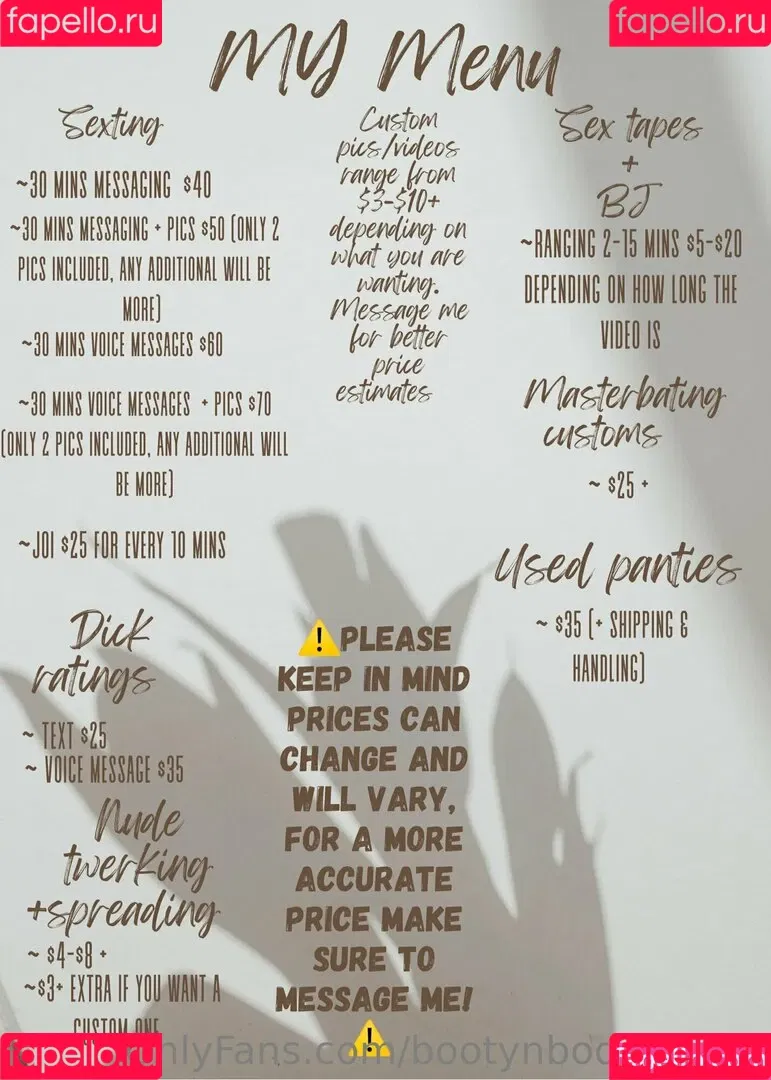 fapello.ru
fapello.ru
MY Menu
Sexting
~30 MINS MESSAGING $40
~30 MINS MESSAGING + PICS $50 (ONLY 2
PICS INCLUDED, ANY ADDITIONAL WILL BE
MORE)
~30 MINS VOICE MESSAGES $60
~30 MINS VOICE MESSAGES + PICS $70
(ONLY 2 PICS INCLUDED, ANY ADDITIONAL WILL
BE MORE)
~JOI $25 FOR EVERY 10 MINS
Dick
ratings
~ TEXT $25
~ VOICE MESSAGE $35
Nude
twerking
+spreading
~ $4-$8 +
~$3+ EXTRA IF YOU WANT A
CUSTOM ONE
Custom
pics/videos
range from
$3-$10+
depending on
what you are
wanting.
Message me
for better
price
estimates
⚠️PLEASE
KEEP IN MIND
PRICES CAN
CHANGE AND
WILL VARY,
FOR A MORE
ACCURATE
PRICE MAKE
SURE TO
MESSAGE ME!
⚠️
Sex tapes
+
BJ
~RANGING 2-15 MINS $5-$20
DEPENDING ON HOW LONG THE
VIDEO IS
Masterbating
customs
~ $25 +
Used panties
~ $35 (+ SHIPPING &
HANDLING)
fapello.ru
fapello.ru